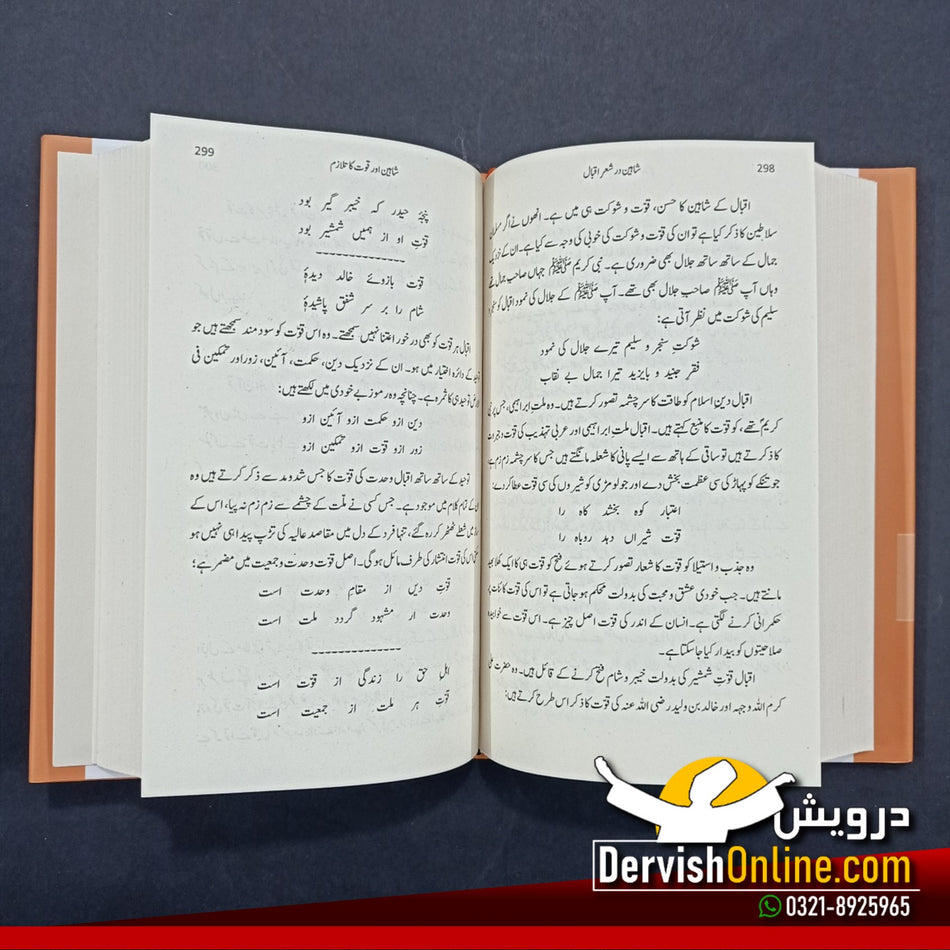 298
شاہین در شعر اقبال
اقبال کے شاہین کا حسن، قوّت و شوکت ہی میں ہے۔ انھوں نے اگر
سلاطین کا ذکر کیا ہے تو ان کی قوّت و شوکت کی خوبی کی وجہ سے کیا ہے۔ ان کے نزدیک
جمال کے ساتھ ساتھ جلال بھی ضروری ہے۔ نبی کریم ﷺ جہاں صاحبِ جمال تھے
وہاں آپ ﷺ صاحبِ جلال بھی تھے۔ آپ ﷺ کے جلال کی نمود اقبال کو
سلیم کی شوکت میں نظر آتی ہے:
شوکتِ سنجر و سلیم تیرے جلال کی نمود
فقرِ جنید و بایزید تیرا جمال بے نقاب
اقبال دینِ اسلام کو طاقت کا سرچشمہ تصور کرتے ہیں۔ وہ ملتِ ابراہیمی، جس پر نبی
کریمؐ تھے، کو قوّت کا منبع کہتے ہیں۔ اقبال ملتِ ابراہیمی اور عربی تہذیب کی قوت و
کا ذکر کرتے ہیں تو ساقی کے ہاتھ سے ایسے پانی کا شعلہ مانگتے ہیں جس کا سرچشمہ زم زم ہے
جو تنکے کو پہاڑ کی سی عظمت بخش دے اور جو لومڑی کو شیروں کی سی قوّت عطا کر دے:
اعتبار کوہ بخشد کاہ را
قوّت شیراں دہد روباہ را
وہ جذب و استیلا کو قوّت کا شعار تصور کرتے ہوئے فتح کو قوّت ہی کا ایک
مانتے ہیں۔ جب خودی عشق و محبت کی بدولت محکم ہو جاتی ہے تو اس کی قوّت کائنات پر
حکمرانی کرنے لگتی ہے۔ انسان کے اندر کی قوّت اصل چیز ہے۔ اس قوّت سے
صلاحیتوں کو بیدار کیا جا سکتا ہے۔
اقبال قوّتِ شمشیر کی بدولت خیبر و شام فتح کرنے کے قائل ہیں۔ وہ حضرت علی
کرم اللہ وجہہ اور خالد بن ولید رضی اللہ عنہ کی قوّت کا ذکر اس طرح کرتے ہیں:
299
شاہین اور قوت کا تلازم
پنجۂ حیدر کہ خیبر گیر بود
قوّتِ او از ہمیں شمشیر بود
قوّت بازوئے خالد دیدۂ
شام را بر سر شفق پاشیدۂ
اقبال ہر قوّت کو بھی در خور اعتنا نہیں سمجھتے۔ وہ اس قوّت کو سود مند سمجھتے ہیں جو
توحید کے دائرہ اختیار میں ہو۔ ان کے نزدیک دین، حکمت، آئین، زور اور تمکین فی
توحید ہی کا ثمرہ ہے۔ چنانچہ وہ رموزِ بے خودی میں لکھتے ہیں:
دین ازو حکمت ازو آئین ازو
زور ازو قوّت ازو تمکین ازو
توحید کے ساتھ ساتھ اقبال وحدت کی قوّت کا جس شد و مد سے ذکر کرتے ہیں وہ
ان کے تمام کلام میں موجود ہے۔ جس کسی نے ملّت کے چشمے سے زم زم نہ پیا، اس کے
میں شعلے ٹھٹھر کر رہ گئے، تنہا فرد کے دل میں مقاصدِ عالیہ کی تڑپ پیدا ہی نہیں ہو
سکتی اس کی قوت انتشار کی طرف مائل ہو گی۔ اصل قوّت وحدت و جمعیت میں مضمر ہے؛
قوّتِ دیں از مقامِ وحدت است
وحدت ار مشہود گردد ملت است
اہلِ حق را زندگی از قوّت است
قوّتِ ہر ملت از جمعیت است
درویش
DervishOnline.com
0321-8925965